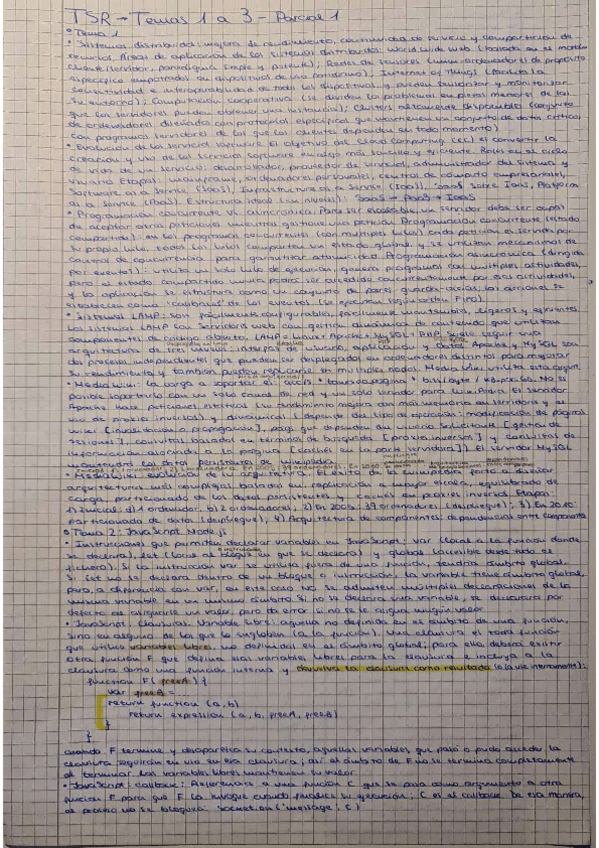 TSR → Temas 1 a 3 - Parcial 1
• Tema 1
• Sistemas distribuidos: mejora de rendimiento, continuidad de servicio y compartición de
recursos. Áreas de aplicación de los sistemas distribuidos: World wide web (basada en el modelo
cliente/servidor, paradigma simple y potente); Redes de sensores (mini-ordenadores de propósito
específico empotrados en dispositivos de uso cotidiano); Internet of Things (facilita la
conectividad e interoperabilidad de todos los dispositivos y pueden
su entorno); Computación cooperativa (se dividen los problemas en piezas menores de las
que los servidores pueden obtener una instancia); Clusters altamente disponibles (conjunto
de ordenadores diseñados con protocolos específicos que mantienen un conjunto de datos críticos,
con programas servidores de los que los clientes dependen en todo momento)
• Evolución de los servicios software. El objetivo del cloud computing (CC) es convertir la
creación y uso de los servicios software en algo más sencillo y eficiente. Roles en el ciclo
de vida de un servicio: desarrollador, proveedor de servicios, administrador del sistema y
usuario. Etapas: mainframe, ordenadores personales, centros de cómputo empresariales,
Software as a Service (SaaS), Infrastructure as a Service (IaaS), SaaS sobre IaaS, Platform
as a Service (PaaS). Estructura ideal (en niveles): SaaS → PaaS → IaaS
• Programación concurrente vs asincrónica. Para ser escalable, un servidor debe ser capaz
de aceptar otras peticiones mientras gestiona una petición. Programación concurrente (estado
compartido): en los programas concurrentes (con múltiples hilos) cada petición es servida por
su propio hilo, todos los hilos comparten un estado global, y se utilizan mecanismos de
control de concurrencia para garantizar atomicidad. Programación asincrónica (dirigida
por eventos): utiliza un solo hilo de ejecución, genera programas con múltiples actividades,
pero el estado compartido nunca podrá ser accedido concurrentemente por esas actividades,
y la aplicación se estructura como un conjunto de pares guarda-acción, las acciones se
establecen como "callbacks" de los eventos (se ejecutan según orden FIFO).
• Sistemas LAMP: son fácilmente configurables, fácilmente mantenibles, ligeros y eficientes.
Los sistemas LAMP son servidores web con gestión dinámica de contenido que utilizan
componentes de código abierto. LAMP = Linux + Apache + MySQL + PHP. Suele seguir una
arquitectura de tres niveles: interfaz de usuario, aplicación y datos. Apache y MySQL son
dos procesos independientes que pueden ser desplegados en ordenadores distintos para mejorar
su rendimiento y también pueden replicarse en múltiples nodos. Media Wiki utiliza esta arquit.
• Media Wiki: la carga a soportar es: acc/s * tamaño página * bits/byte / kb-perdido. No es
posible soportarlo con un solo canal de red y un solo servidor para Wikipedia. El servidor
Apache hace peticiones
uso de proxies inversos) y dinámicas (depende del tipo de operación: modificación de páginas
wiki [invalidación o propagación], págs que dependen del usuario solicitante [gestión de
sesiones], consultas basadas en términos de búsqueda [proxies inversos] y consultas de
información asociada a la página [cachés en la parte servidora]). El servidor MySQL
mantendrá los datos persistentes de wikipedia.
• Media Wiki evolución de su arquitectura. El éxito de la empresa puede llevar a diseñar
arquitecturas más complejas basadas en replicación a mayor escala, equilibrado de
carga, particionado de los datos persistentes y cachés en proxies inversos. Etapas:
1) Inicial: a) 1 ordenador. b) 2 ordenadores; 2) En 2005: 39 ordenadores (despliegue); 3) En 2010:
particionado de datos (despliegue), 4) Arquitectura de componentes: dependencias entre componentes
• Tema 2: JavaScript Node.js
• Instrucciones que permiten declarar variables en JavaScript: var (local a la función donde
se declara), let (local al bloque en que se declara) y global (accesible desde todo el
fichero). Si la instrucción var se utiliza fuera de una función, tendría ámbito global.
Si let no se declara dentro de un bloque o instrucción, la variable tiene ámbito global,
pero, a diferencia con var, en este caso no se admiten múltiples declaraciones de la
misma variable en un mismo ámbito. Si no se declara una variable, se declarará por
defecto al asignarle un valor, pero da error si no se le asigna ningún valor.
• JavaScript: clausuras. Variable libre: aquella no definida en el ámbito de una función,
sino en alguno de los que la engloban (a la función). Una clausura es toda función
que utilice variables libres, no definidas en el ámbito global; para ello deberá existir
otra función F que defina esas variables libres para la clausura e incluya a la
clausura como una función interna y devuelva la clausura como resultado (o la use internamente):
function F( freeA ) {
var freeB = ...
return function (a, b)
return expression (a, b, freeA, freeB)
}
}
cuando F termine y desaparezca su contexto, aquellas variables que pasó o pudo acceder la
clausura seguirán en uso en esa clausura; así el ámbito de F no se termina completamente
al terminar. Las variables libres mantienen su valor.
• JavaScript: callbacks. Referencia a una función C que se pasa como argumento a otra
función F para que F la invoque cuando finalice su ejecución; C es el callback. De esa manera,
el proceso no se bloquea. socket.on ('message', C)